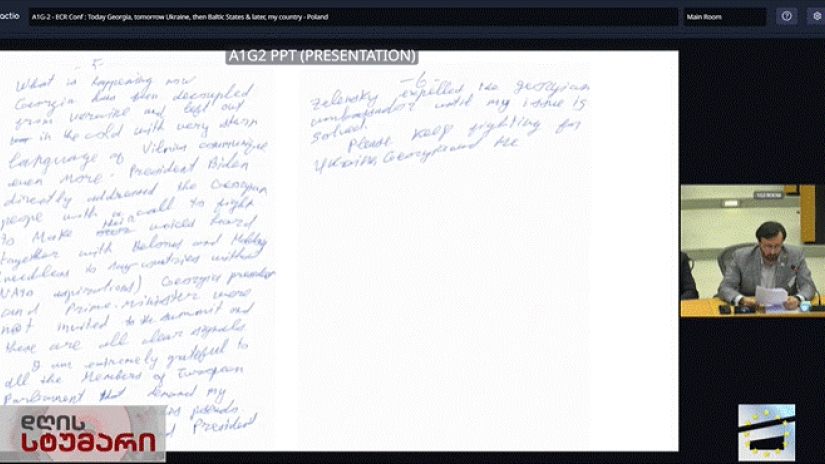 actio
A1G-2 - ECR Conf : Today Georgia, tomorrow Ukraine, then Baltic States & later, my country - Poland
Main Room
A1G2 PPT (PRESENTATION)
- 5 -
What is happening now
Georgia has been decoupled
from Ukraine and left out
in the cold with very stern
language of Vilnius communique
even more - President Biden
directly addressed the Georgian
people with a call to fight
to make their voices heard
together with Belarus and
(needless to say countries without
NATO aspirations) Georgia president
and Prime-minister were
not invited to the summit and
there are all clear signals
I am extremely grateful to
all the Members of European
Parliament that demand my
President
-6-
Zelensky expelled the georgian
ambassador until my issue is
solved.
Please keep fighting for
Ukraine, Georgia and the
დღის
სტუმარი